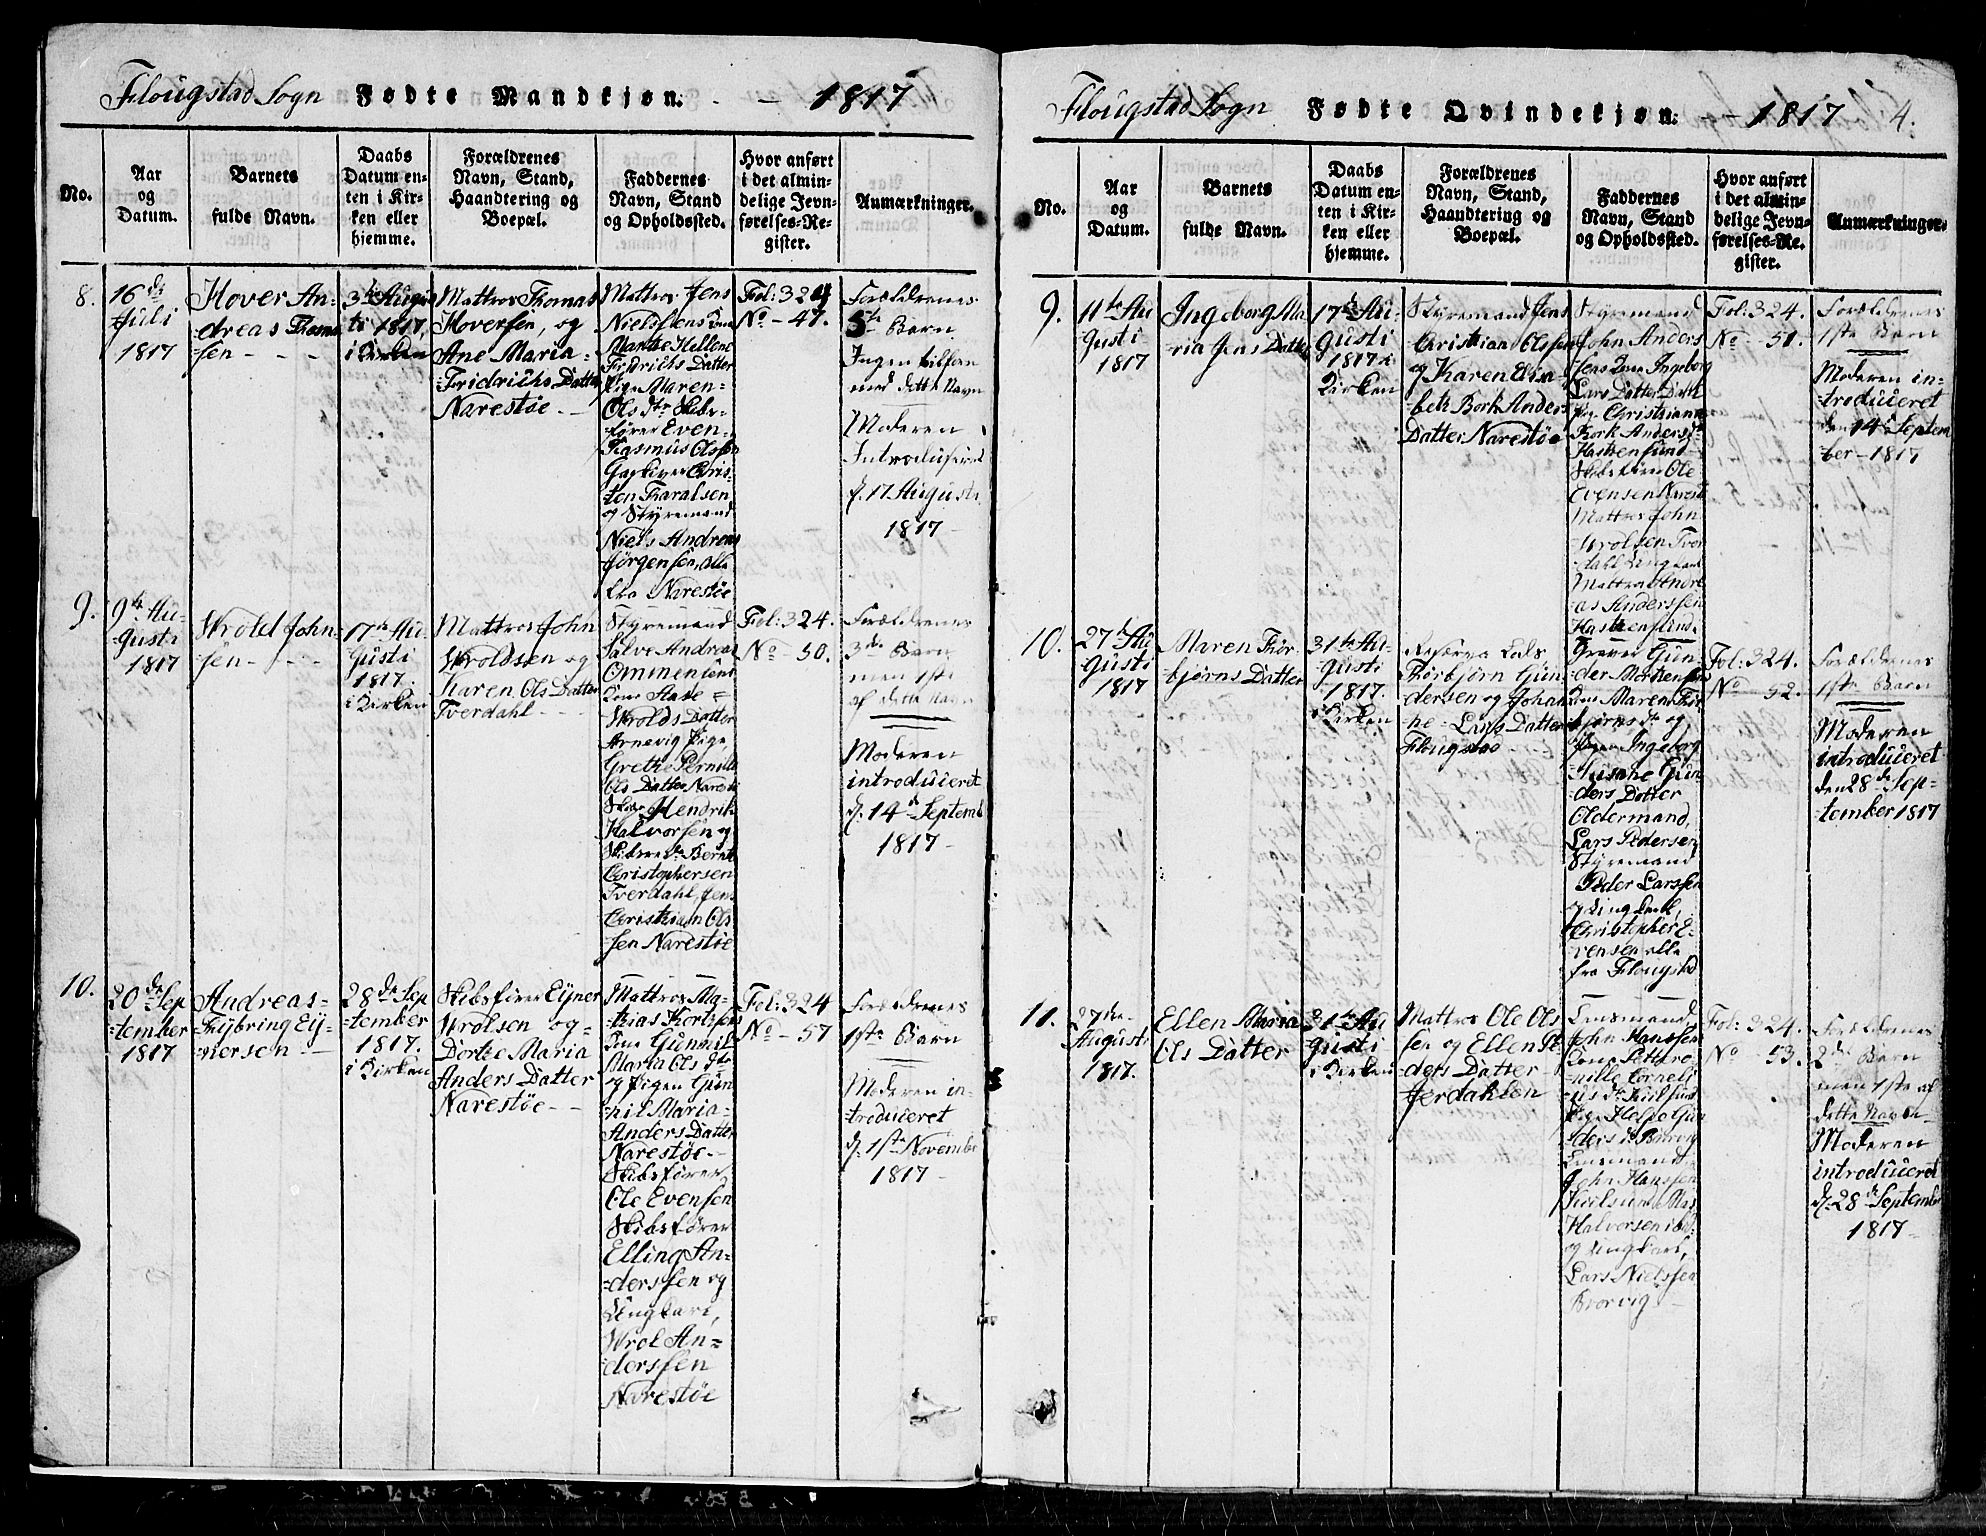 Flougstad Sogn Fødte Mandkjøn. - - 1817
No.
Aar
og
Datum.
Barnets
fulde Navn.
Daabs
Datum en-
ten i Kir-
ken eller
hjemme.
Forældrenes
Navn, Stand,
Haandtering og
Boepæl.
Faddernes
Navn, Stand
og Opholdssted.
Hvor anført
i det almin-
delige Jevn-
førelses-Re-
gister.
Anmærkninger.
8.
16de
Juli
1817
Hover An-
dreas Thom
sen - - -
3die Augu
sti 1817,
i Kirken
Mattros Thomas
Hoversen, og
Ane Maria-
Fridrichs Datter
Narestøe -
Mattros Jens
Nielssens Kone
Marthe Hellene
Fridrichs Datter
Pige Maren-
Ols dtr Skibs-
fører Even-
Rasmus Olssen
Christen
Haralsen
og Styremand
Niels Andreas
Jørgensen, alle
fra Narestøe
Fol: 324
No - 47.
Forældrenes
5te Barn
Ingen tilforn
med dette Navn
Moderen
Introduceret
d. 17 Augusti
1817 -
9.
9de Au-
gusti
1817
Wrold John-
sen - - -
17de Au-
gusti
1817.
i Kirken
Mattros John
Wroldsen og
Karen Ols Datter
Tverdahl - -
Styremand
Salve Andreas
Ommensens
Kone Aase =
Wrolds Datter
Arnevig Pige,
Grethe Pernille
Ols Datter Narestøe
Hendrik
Halvorsen og
Bernt
Christophersen
Tverdahl, Jens
Christian Ols
sen Narestøe
Fol: 324.
No - 50.
Forældrenes
3die Barn
men 1ste
af dette Navn
Moderen
introduceret
d. 14de Septemb
1817 -
10.
20de Sep
tember
1817
Andreas-
Fybring Ey-
nersen -
28de Sep
tember
1817.
i Kirken
Skibsfører Eyner
Wrolsen og-
Dorthe Maria
Anders Datter
Narestøe -
Mattros Ma-
thias Kortssens
Kone Gunnil
Maria Ols dtr
og Pigen Gun-
nil Maria-
Anders Datter
Narestøe -
Skibsfører
Ole Evensen
Skibsfører
Elling An-
derssen og
Ungkarl,
Wrol An-
derssen
Narestøe
Fol: 324
No - 57
Forældrenes
1ste Barn
Moderen in-
troduceret
d. 1ste November
1817 -
Flougstad Sogn Fødte Qvindekjøn. - - 1817 4.
No.
Aar
og
Datum.
Barnets
fulde Navn.
Daabs
Datum en-
ten i Kir-
ken eller
hjemme.
Forældrenes
Navn, Stand,
Haandtering og
Boepæl.
Faddernes
Navn, Stand
og Opholdssted.
Hvor anført
i det almin-
delige Jevn-
førelses-Re-
gister.
Anmærkninger.
9.
11te Au
gusti
1817
Ingeborg Ma
ria Jens Datter
17de Au-
gusti
1817 i
Kirken
Styremand Jens
Christian Olssen
og Karen Elisa
beth Bork Anders
Datter Narestøe
Styremand
John Anders
sens Kone Ingeborg
Lars Datter
Pige Christiane
Bork Anders dtr
Hastensund
Skibsfører Ole
Evensen Narest
Mattros John
Wrolsen Tver
dahl Ungkarl
Mattros Andre
as Anderssen
Hastensund.
Fol: 324.
No - 51.
Forældrenes
1ste Barn
Moderen in-
troduceret
den 14de Septem
ber - 1817
10.
27de Au
gusti
1817
Maren Thor
bjørns Datter
31te Au-
gusti
1817.
i Kirken
Thorbjørn Gun
dersen og Johan
ne - Lars Datter
Flougstad
Gun
der Mortensens
Kone Maren Thor
bjørns dtr og
Pigen Ingeborg
Susane Gun
ders Datter
Oldermand,
Lars Pedersen
Styremand
Peder Larssen
og Ungkarl,
Christopher E-
vensen alle
fra Flougstad
Fol: 324.
No - 52.
Forældrenes
1ste Barn
Moderen
introduceret
den 28de Sep-
tember 1817
11.
27de
Augusti
1817.
Ellen Maria
Ols Datter
31te Au
gusti
i Kirken
Mattros Ole Ols
sen og Ellen Pe
ders Datter
Jerdahlen
Lensmand
John Hanssens
Kone Pettro
nille Corneli
us dtr Kiilsund
Pige Helge Gun
ders d. Borvig
Lensmand
John Hanssen
Kiilsund Mas
Halvorsen ibd
og Ungkarl,
Lars Nielssen
Borvig -
Fol: 324.
No - 53.
Forældrenes
2det Barn
men 1ste af
dette Navn
Moderen
introduceret
d. 28de September
1817 -